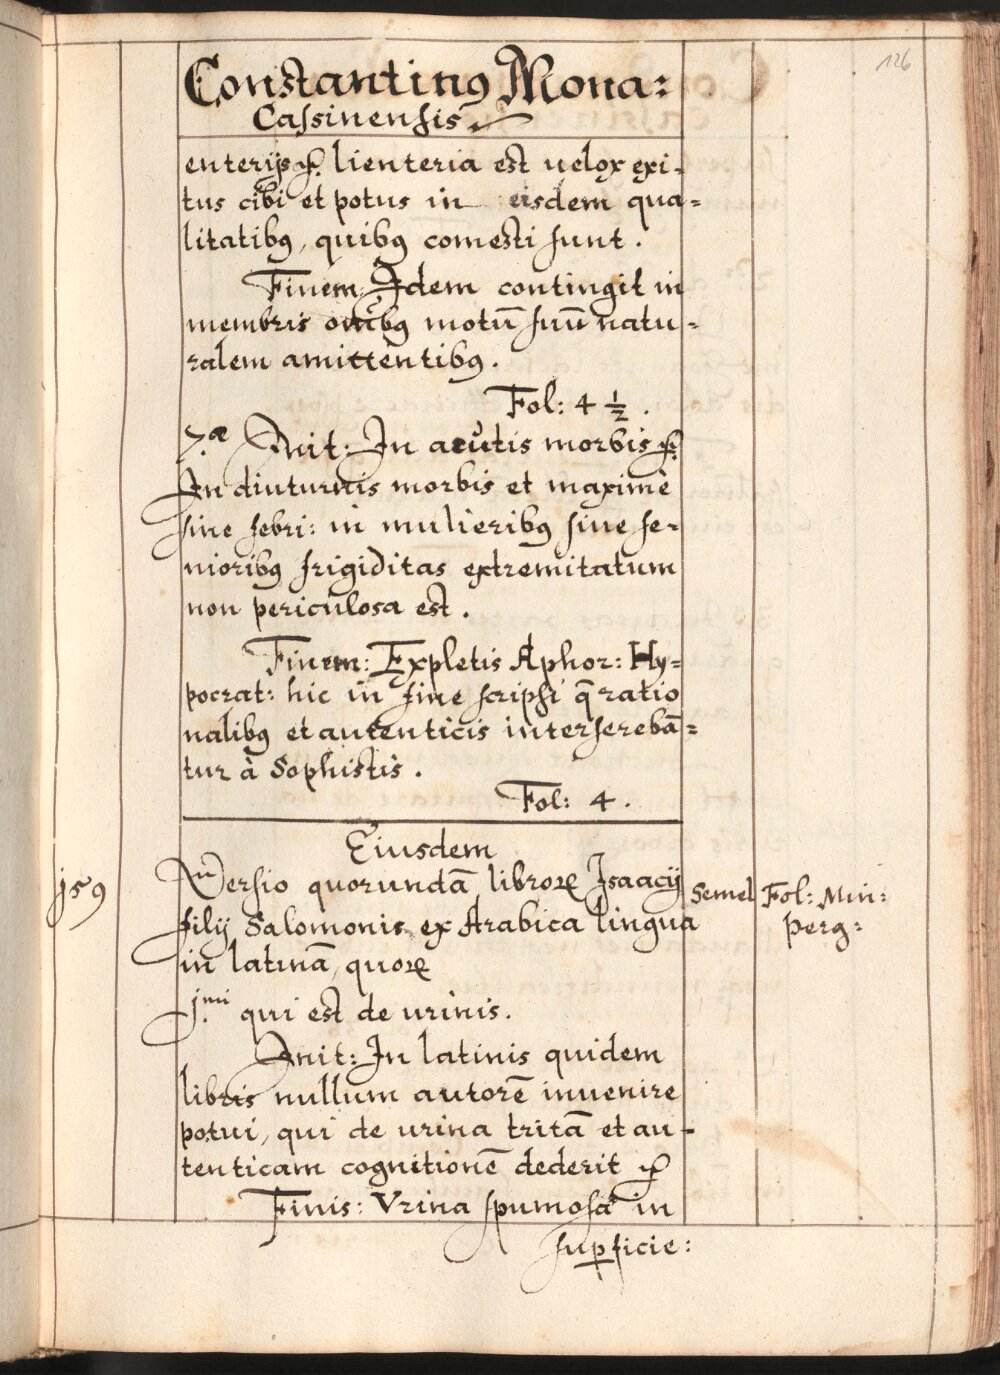 126
Constantinus Mona:
Cassinensis
enterijs &c. lienteria est uelox exi-
tus cibi et potus in eisdem qua-
litatibus, quibus comesti sunt.
Finem: Idem contingit in
membris oībus motū suū natu-
ralem amittentibus.
Fol: 4 ½.
7.æ Init: In acutis morbis &c.
In diuturnis morbis et maximè
sine febri: in mulieribus siue se-
nioribus frigiditas extremitatum
non periculosa est.
Finem: Expletis Aphor: Hy-
pocrat: hic in fine scripsi q̄ ratio
nalibus et autenticis interserebā-
tur à Sophistis.
Fol: 4.
Eiusdem
159 Versio quorundā librorꝝ Isaacij Semel Fol: Min:
filij Salomonis ex Arabica lingua perg:
in latinā, quorꝝ
1.mi qui est de urinis.
Init: In latinis quidem
libris nullum autorē inuenire
potui, qui de urina tritā et au-
tenticam cognitionē dederit &c
Finis: Vrina spumosa in
suꝑficie: